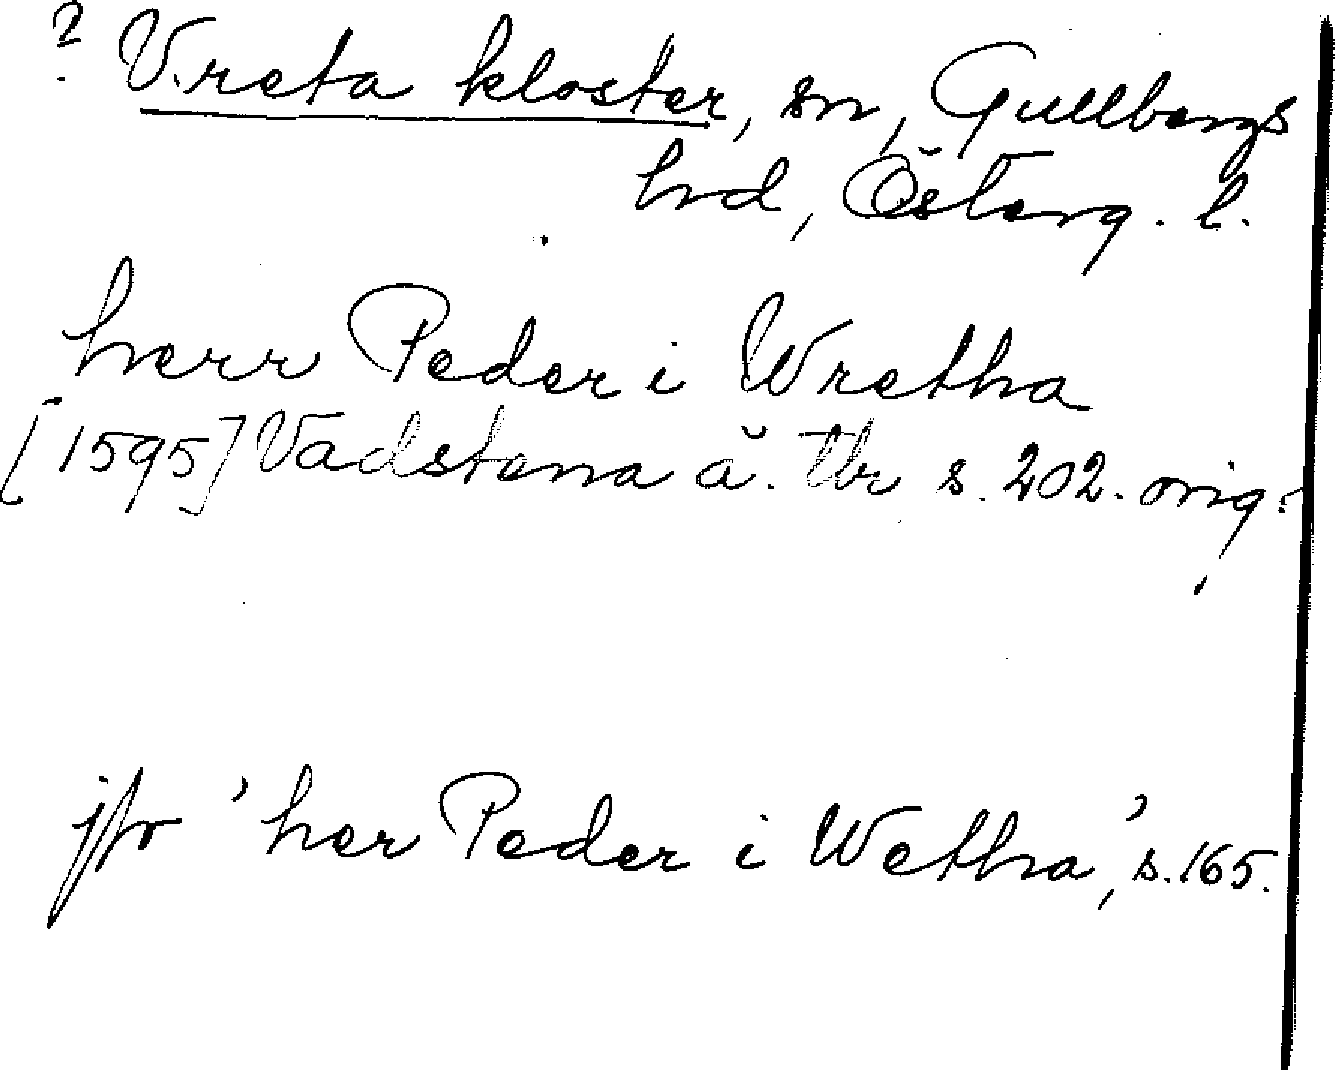 ? Vreta kloster, sn, Gullbergs
hd, Österg. l.
herr Peder i Wretha
[1595] Vadstena ä. tb s. 202. orig.
jfr 'her Peder i Wetha', s. 165.